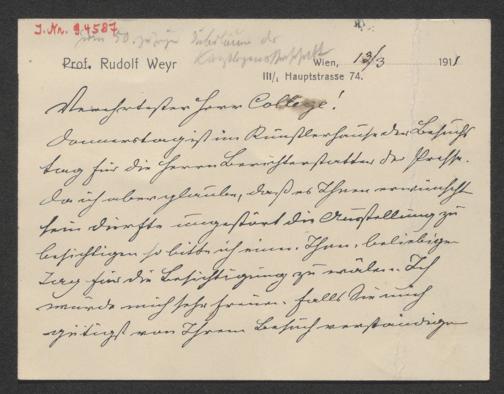 J. Nr. 94587
zum 50. jährigen Jubiläum der
Prof. Rudolf Weyr
Wien, 13/3 1911
III/1, Hauptstrasse 74.
Verehrtester Herr College!
Donnerstag ist im Künstlerhause der Besuchs
tag für die Herrn Berichterstatter der Presse.
Da ich aber glaube, daß es Ihnen erwünscht
sein dürfte ungestört die Ausstellung zu
besichtigen so bitte ich einen Ihnen beliebigen
Tag für die Besichtigung zu wälen. Ich
würde mich sehr freuen, falls Sie mich
gütigst von Ihrem Besuch verständigen